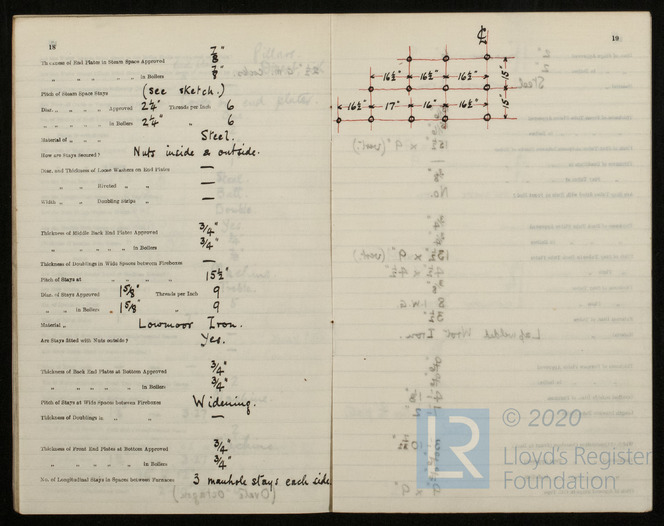 18
Thickness of End Plates in Steam Space Approved 7/8"
" " " " " in Boilers 7/8"
Pitch of Steam Space Stays (see sketch.)
Diar. " " " " Approved 2¼" Threads per Inch 6
" " " " in Boilers 2¼" " 6
Material of " " " Steel.
How are Stays Secured? Nuts inside & outside.
Diar. and Thickness of Loose Washers on End Plates —
" " Riveted " " —
Width " " Doubling Strips " —
Thickness of Middle Back End Plates Approved 3/4"
" " " " " in Boilers 3/4"
Thickness of Doublings in Wide Spaces between Fireboxes —
Pitch of Stays at " " " " 15½"
Diar. of Stays Approved 1 5/8" Threads per Inch 9
" " in Boilers 1 5/8" " 9
Material " Lowmoor Iron.
Are Stays fitted with Nuts outside? Yes.
Thickness of Back End Plates at Bottom Approved 3/4"
" " " " " in Boilers 3/4"
Pitch of Stays at Wide Spaces between Fireboxes Widening.
Thickness of Doublings in " " —
Thickness of Front End Plates at Bottom Approved 3/4"
" " " " " in Boilers 3/4"
No. of Longitudinal Stays in Spaces between Furnaces 3 manhole stays each side
19
16½" 16½" 16½" 15"
16½" 17" 16" 16½" 15"
© 2020
LR
Lloyd's Register
Foundation